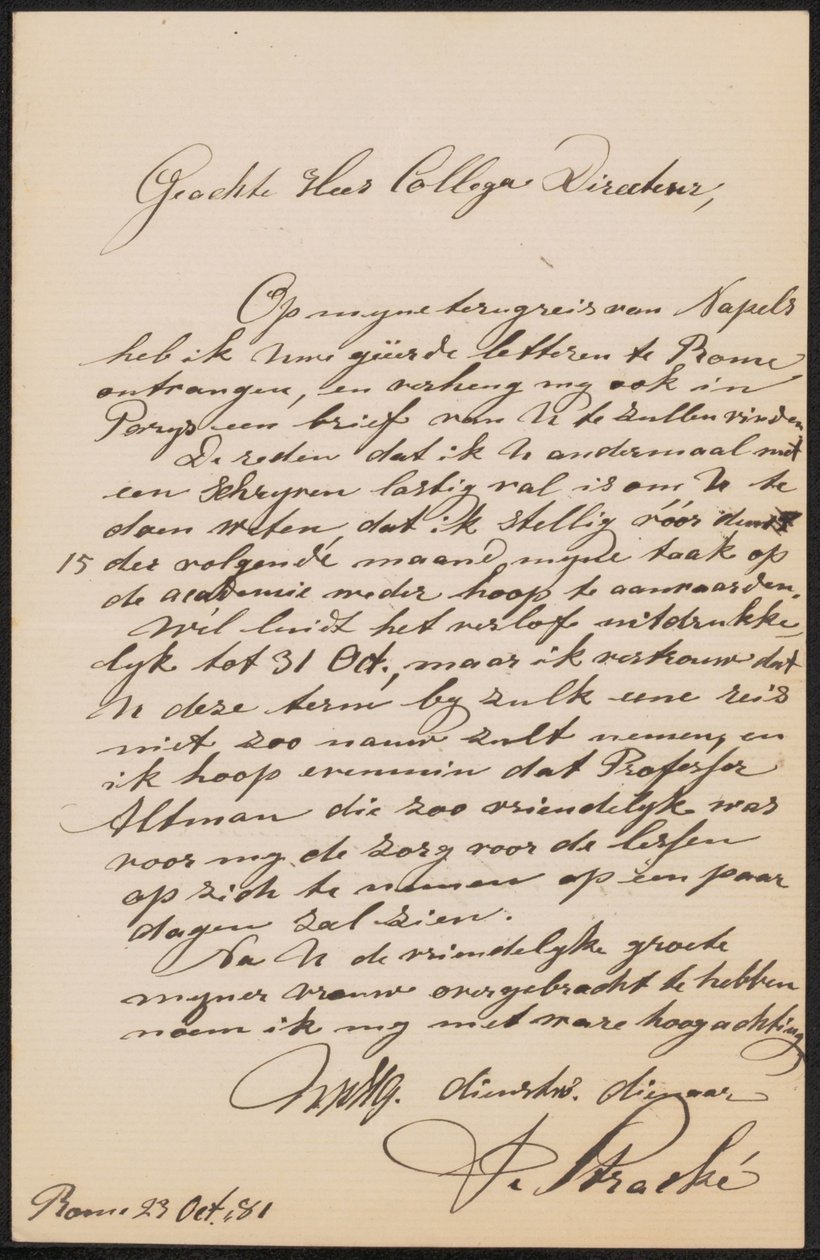 Geachte Heer Collega Directeur,
Op myne terugreis van Napels
heb ik Uwe geëerde letteren te Rome
ontvangen, en verheug my ook in
Parys een brief van U te zullen vinden
De reden dat ik U andermaal met
een schryven lastig val is om U te
doen weten, dat ik stellig vóór den
15 der volgende maand myne taak op
de academie weder hoop te aanvaarden.
Wél luidt het verlof uitdrukke-
lyk tot 31 Oct., maar ik vertrouw dat
U deze term by zulk eene reis
niet zoo nauw zult nemen, en
ik hoop evenmin dat Professor
Altman die zoo vriendelyk was
voor my de zorg voor de lessen
op zich te nemen op één paar
dagen zal zien.
Na U de vriendelyke groete
myner vrouw overgebracht te hebben
noem ik my met ware hoogachting
UwEdg. dienstw. dienaar
Stracké
Rome 23 Oct. 81